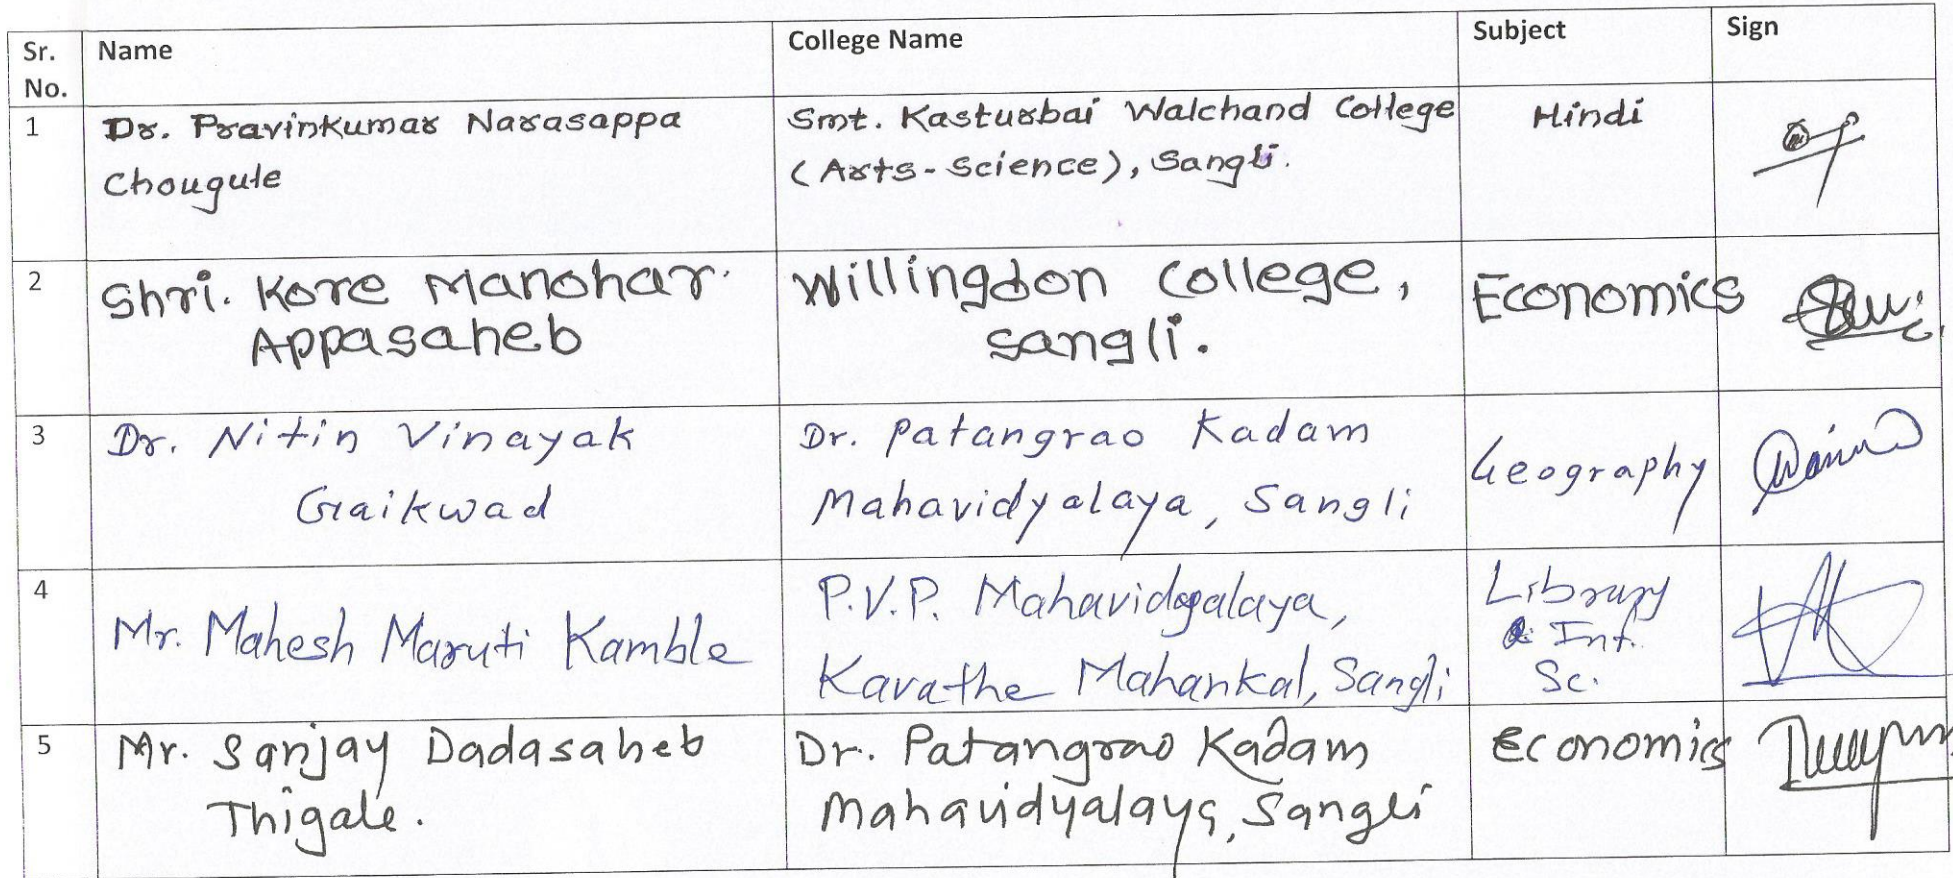 Sr. No.
Name
College Name
Subject
Sign
1
Dr. Pravinkumar Narasappa
Chougule
Smt. Kasturbai Walchand College
(Arts-Science), Sangli.
Hindi
2
Shri. Kore Manohar.
Appasaheb
Willingdon College,
Sangli.
Economics
3
Dr. Nitin Vinayak
Gaikwad
Dr. Patangrao Kadam
Mahavidyalaya, Sangli
Geography
4
Mr. Mahesh Maruti Kamble
P.V.P. Mahavidyalaya,
Kavathe Mahankal, Sangli
Library
& Inf.
Sc.
5
Mr. Sanjay Dadasaheb
Thigale.
Dr. Patangrao Kadam
Mahavidyalaya, Sangli
Economics